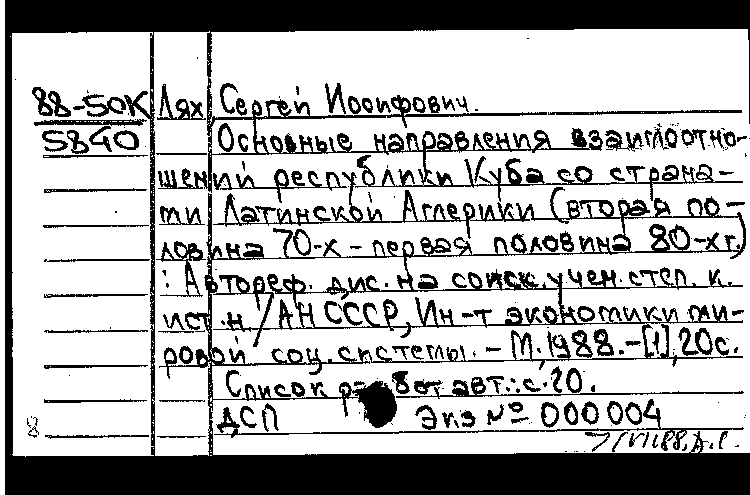 88-50К
5840
Лях, Сергей Иосифович.
Основные направления взаимоотно-
шений республики Куба со страна-
ми Латинской Америки (вторая по-
ловина 70-х - первая половина 80-х г.)
: Автореф. дис. на соиск. учен. степ. к.
ист. н / АН СССР, Ин-т экономики ми-
ровой соц. системы. - М., 1988. - [1], 20 с.
Список работ авт.: с. 20.
ДСП Экз № 000004
8